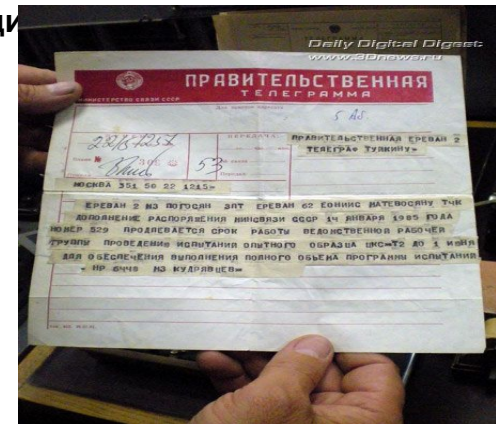 ци
Daily Digital Digest
www.3Dnews.ru
ПРАВИТЕЛЬСТВЕННАЯ
ТЕЛЕГРАММА
МИНИСТЕРСТВО СВЯЗИ СССР
ПЕРЕДАЧА:
53
ПРАВИТЕЛЬСТВЕННАЯ ЕРЕВАН 2
ТЕЛЕГРАФ ТУЛКИНУ=
МОСКВА 351 50 22 1215=
ЕРЕВАН 2 МЗ ПОГОСЯН ЗПТ ЕРЕВАН 62 ЕОНИИС МАТЕВОСЯНУ ТЧК
ДОПОЛНЕНИЕ РАСПОРЯЖЕНИЯ МИНСВЯЗИ СССР 14 ЯНВАРЯ 1985 ГОДА
НОМЕР 529 ПРОДЛЕВАЕТСЯ СРОК РАБОТЫ ВЕДОМСТВЕННОЙ РАБОЧЕЙ
ГРУППЫ ПРОВЕДЕНИЕ ИСПЫТАНИЙ ОПЫТНОГО ОБРАЗЦА ЦКС=Т2 ДО 1 ИЮНЯ
ДЛЯ ОБЕСПЕЧЕНИЯ ВЫПОЛНЕНИЯ ПОЛНОГО ОБЪЕМА ПРОГРАММЫ ИСПЫТАНИЙ
- НР 6444 МЗ КУДРЯВЦЕВ=